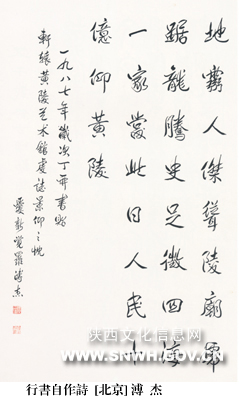 地靈人傑聳陵廟虎
踞龍騰史足徵四海
一家當此日人民十
億仰黃陵
一九八七年歲次丁卯書贈
軒轅黃陵艺术館虔誌景仰之忱
愛新覺羅溥杰
陕西文化信息网
WWW.SNWH.GOV.CN
行書自作詩 [北京] 溥 杰